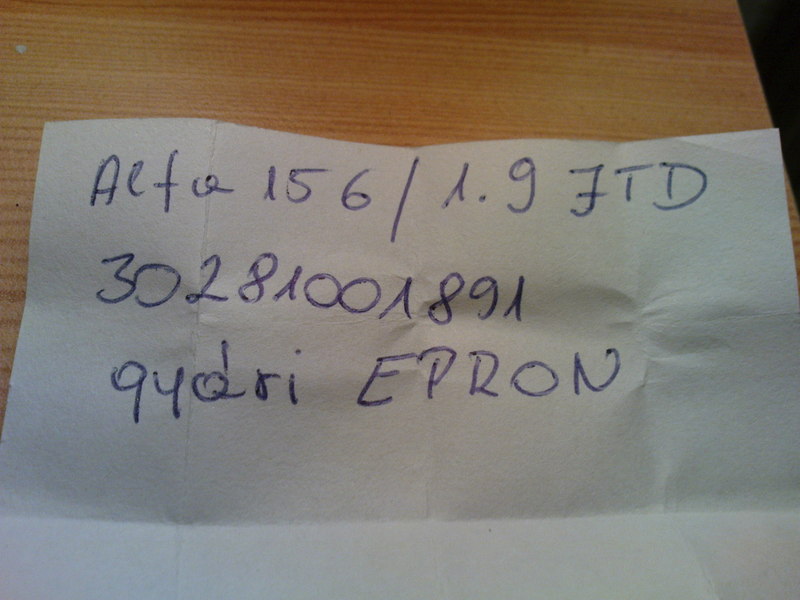 Alfa 156/1.9 JTD
30281001891
gyári EPRON